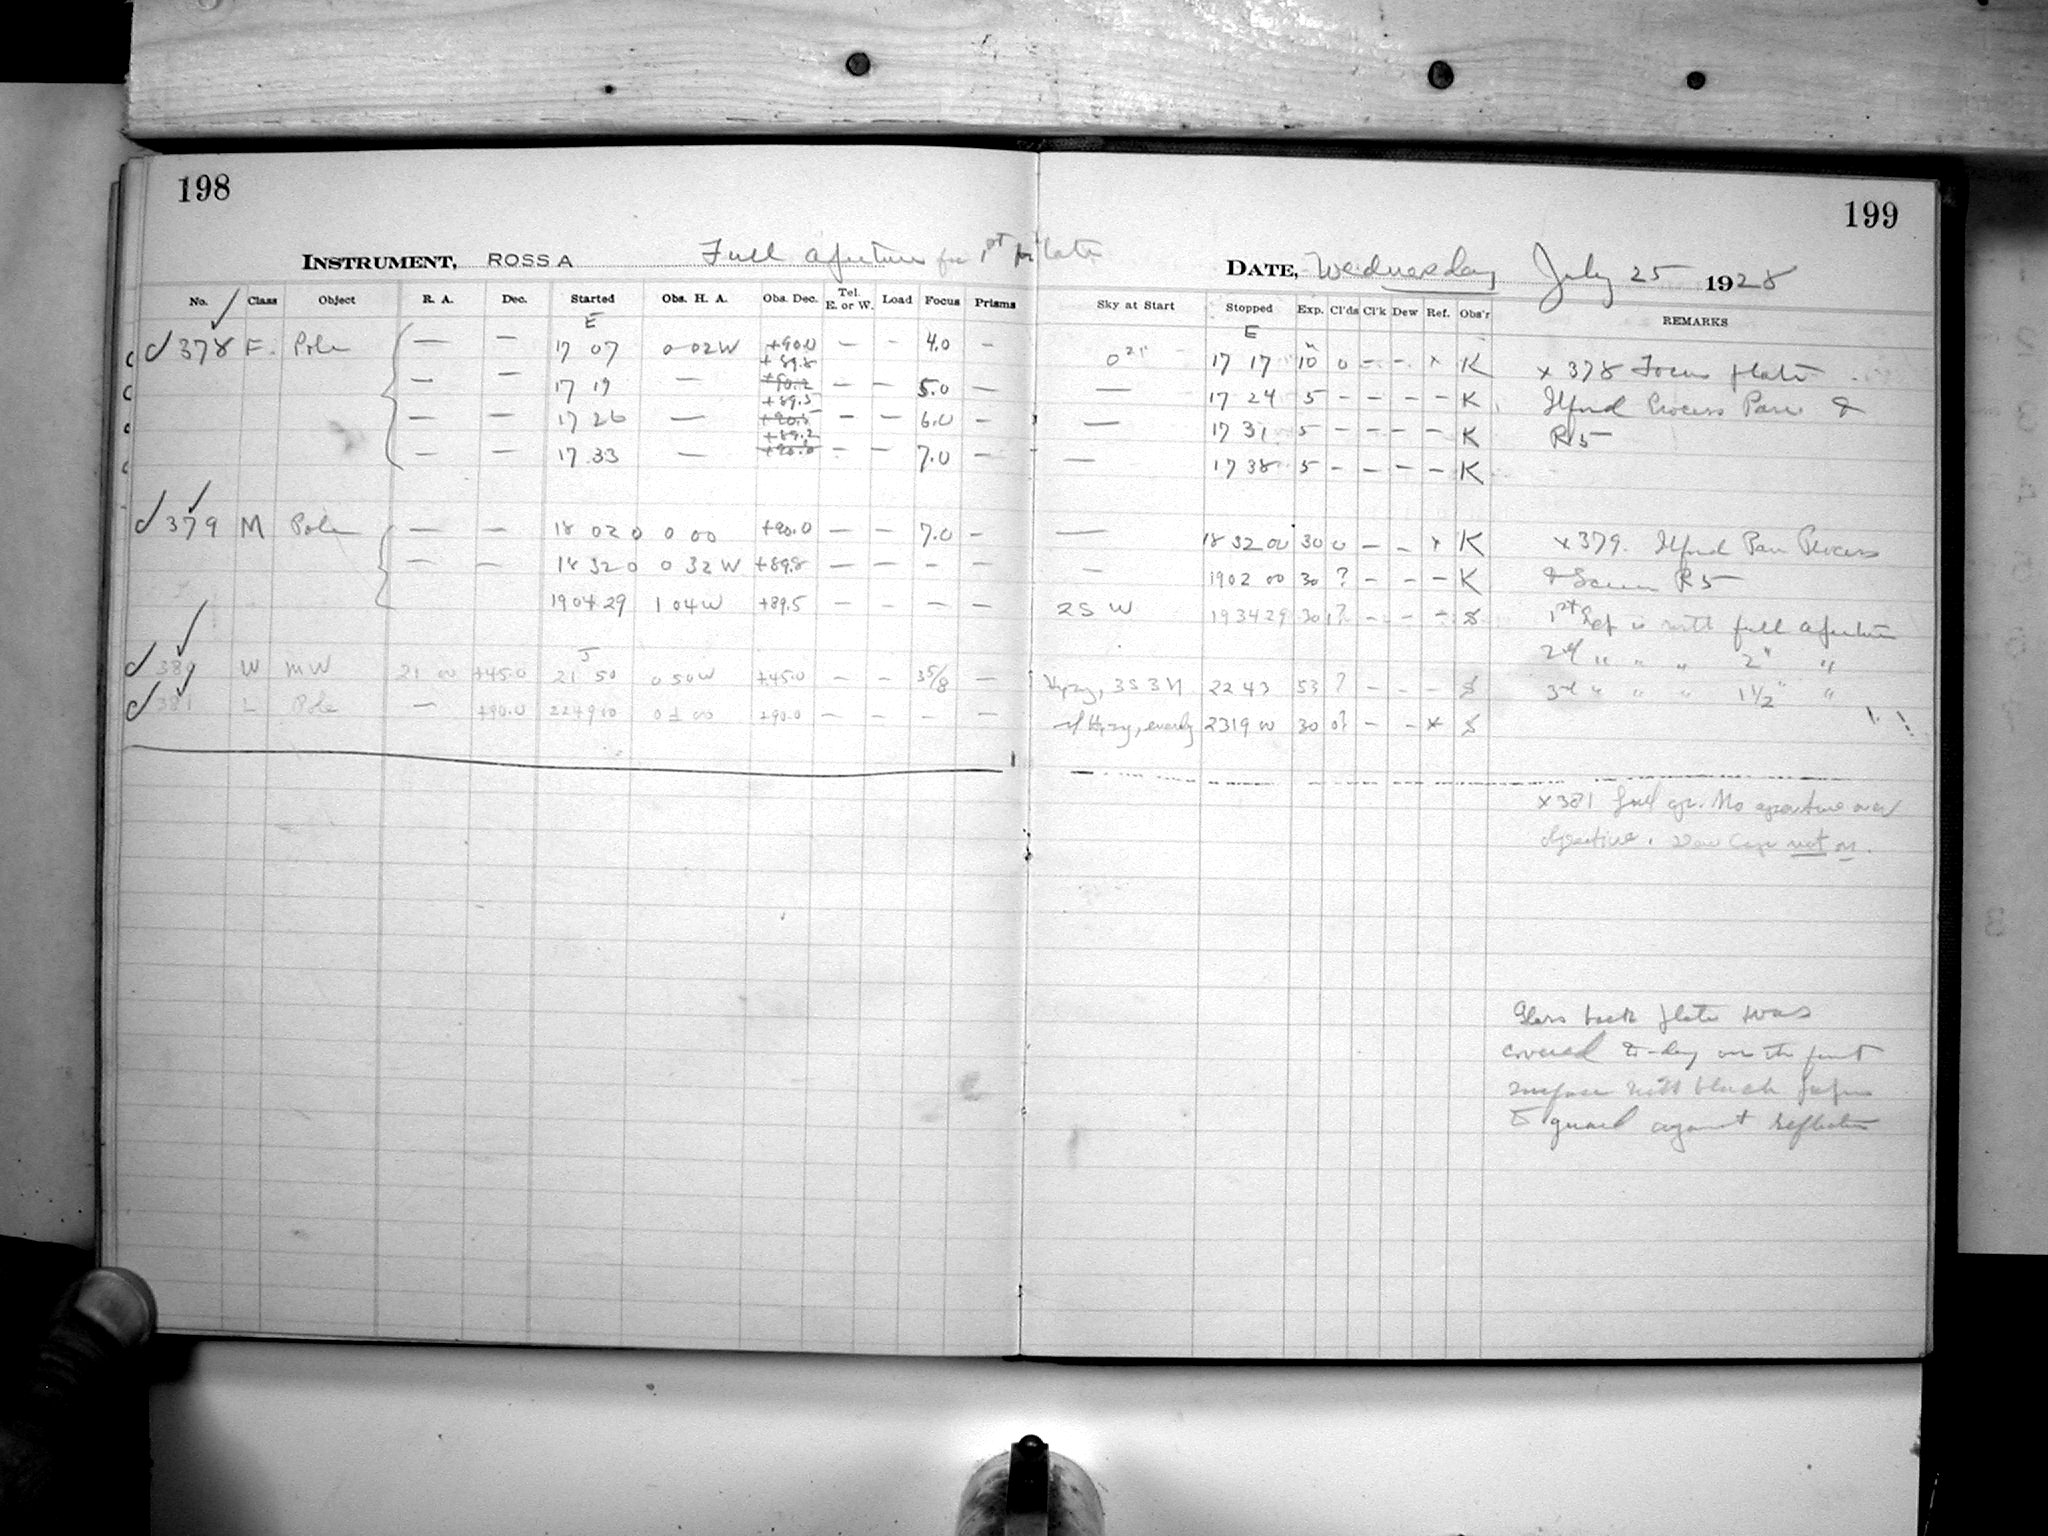 198
199
INSTRUMENT, ROSS A Full aperture for 1st plate
DATE, Wednesday July 25 1928
No. Class Object R. A. Dec. Started Obs. H. A. Obs. Dec. Tel. E. or W. Load Focus Prisms Sky at Start Stopped Exp. Cl'ds Cl'k Dew Ref. Obs'r REMARKS
E E
378 F. Pole — — 17 07 0 02 W +90.0 — — 4.0 — 17 17 10 0 — — x K x 378 Focus plate
— — 17 19 — +89.8 +90.2 — — 5.0 — — 17 24 5 — — — — K Ilford Process Pan &
— — 17 26 — +89.5 +90.5 — — 6.0 — — 17 31 5 — — — — K R 5
— — 17 33 — +89.2 — — 7.0 — — 17 38 5 — — — — K
379 M Pole — — 18 02 0 0 00 +90.0 — — 7.0 — — 18 32 00 30 0 — — x K x 379. Ilford Pan Process
— — 18 32 0 0 32 W +89.8 — — — — — 19 02 00 30 ? — — — K & Screen R 5
19 04 29 1 04 W +89.5 — — — — 2S W 19 34 29 30 1? — — — S 1st Exp is with full aperture
2nd " " " 2" "
J
380 W MW 21 00 +45.0 21 50 0 50 W +45.0 — — 35/8 — Hazy, 3S 3N 22 43 53 ? — — — S 3rd " " " 1½" "
381 L Pole — +90.0 22 49 00 0 ± 00 +90.0 — — — — Hazy, evenly 23 19 00 30 0? — — x S
x 381 full ap. No aperture over
objective. Dew Cap not on.
Glass back plate was
covered to-day on the front
surface with black paper
to guard against reflection